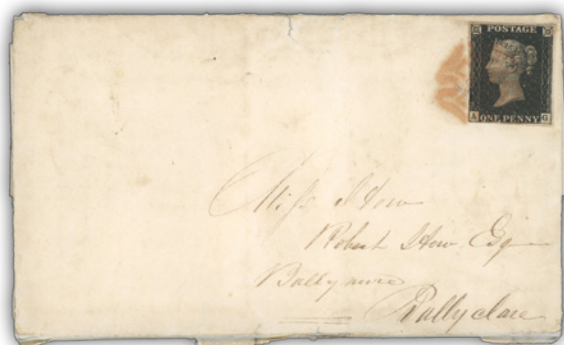 POSTAGE
A ONE PENNY G
Miss How
Robert How Esq
Ballynure
Ballyclare